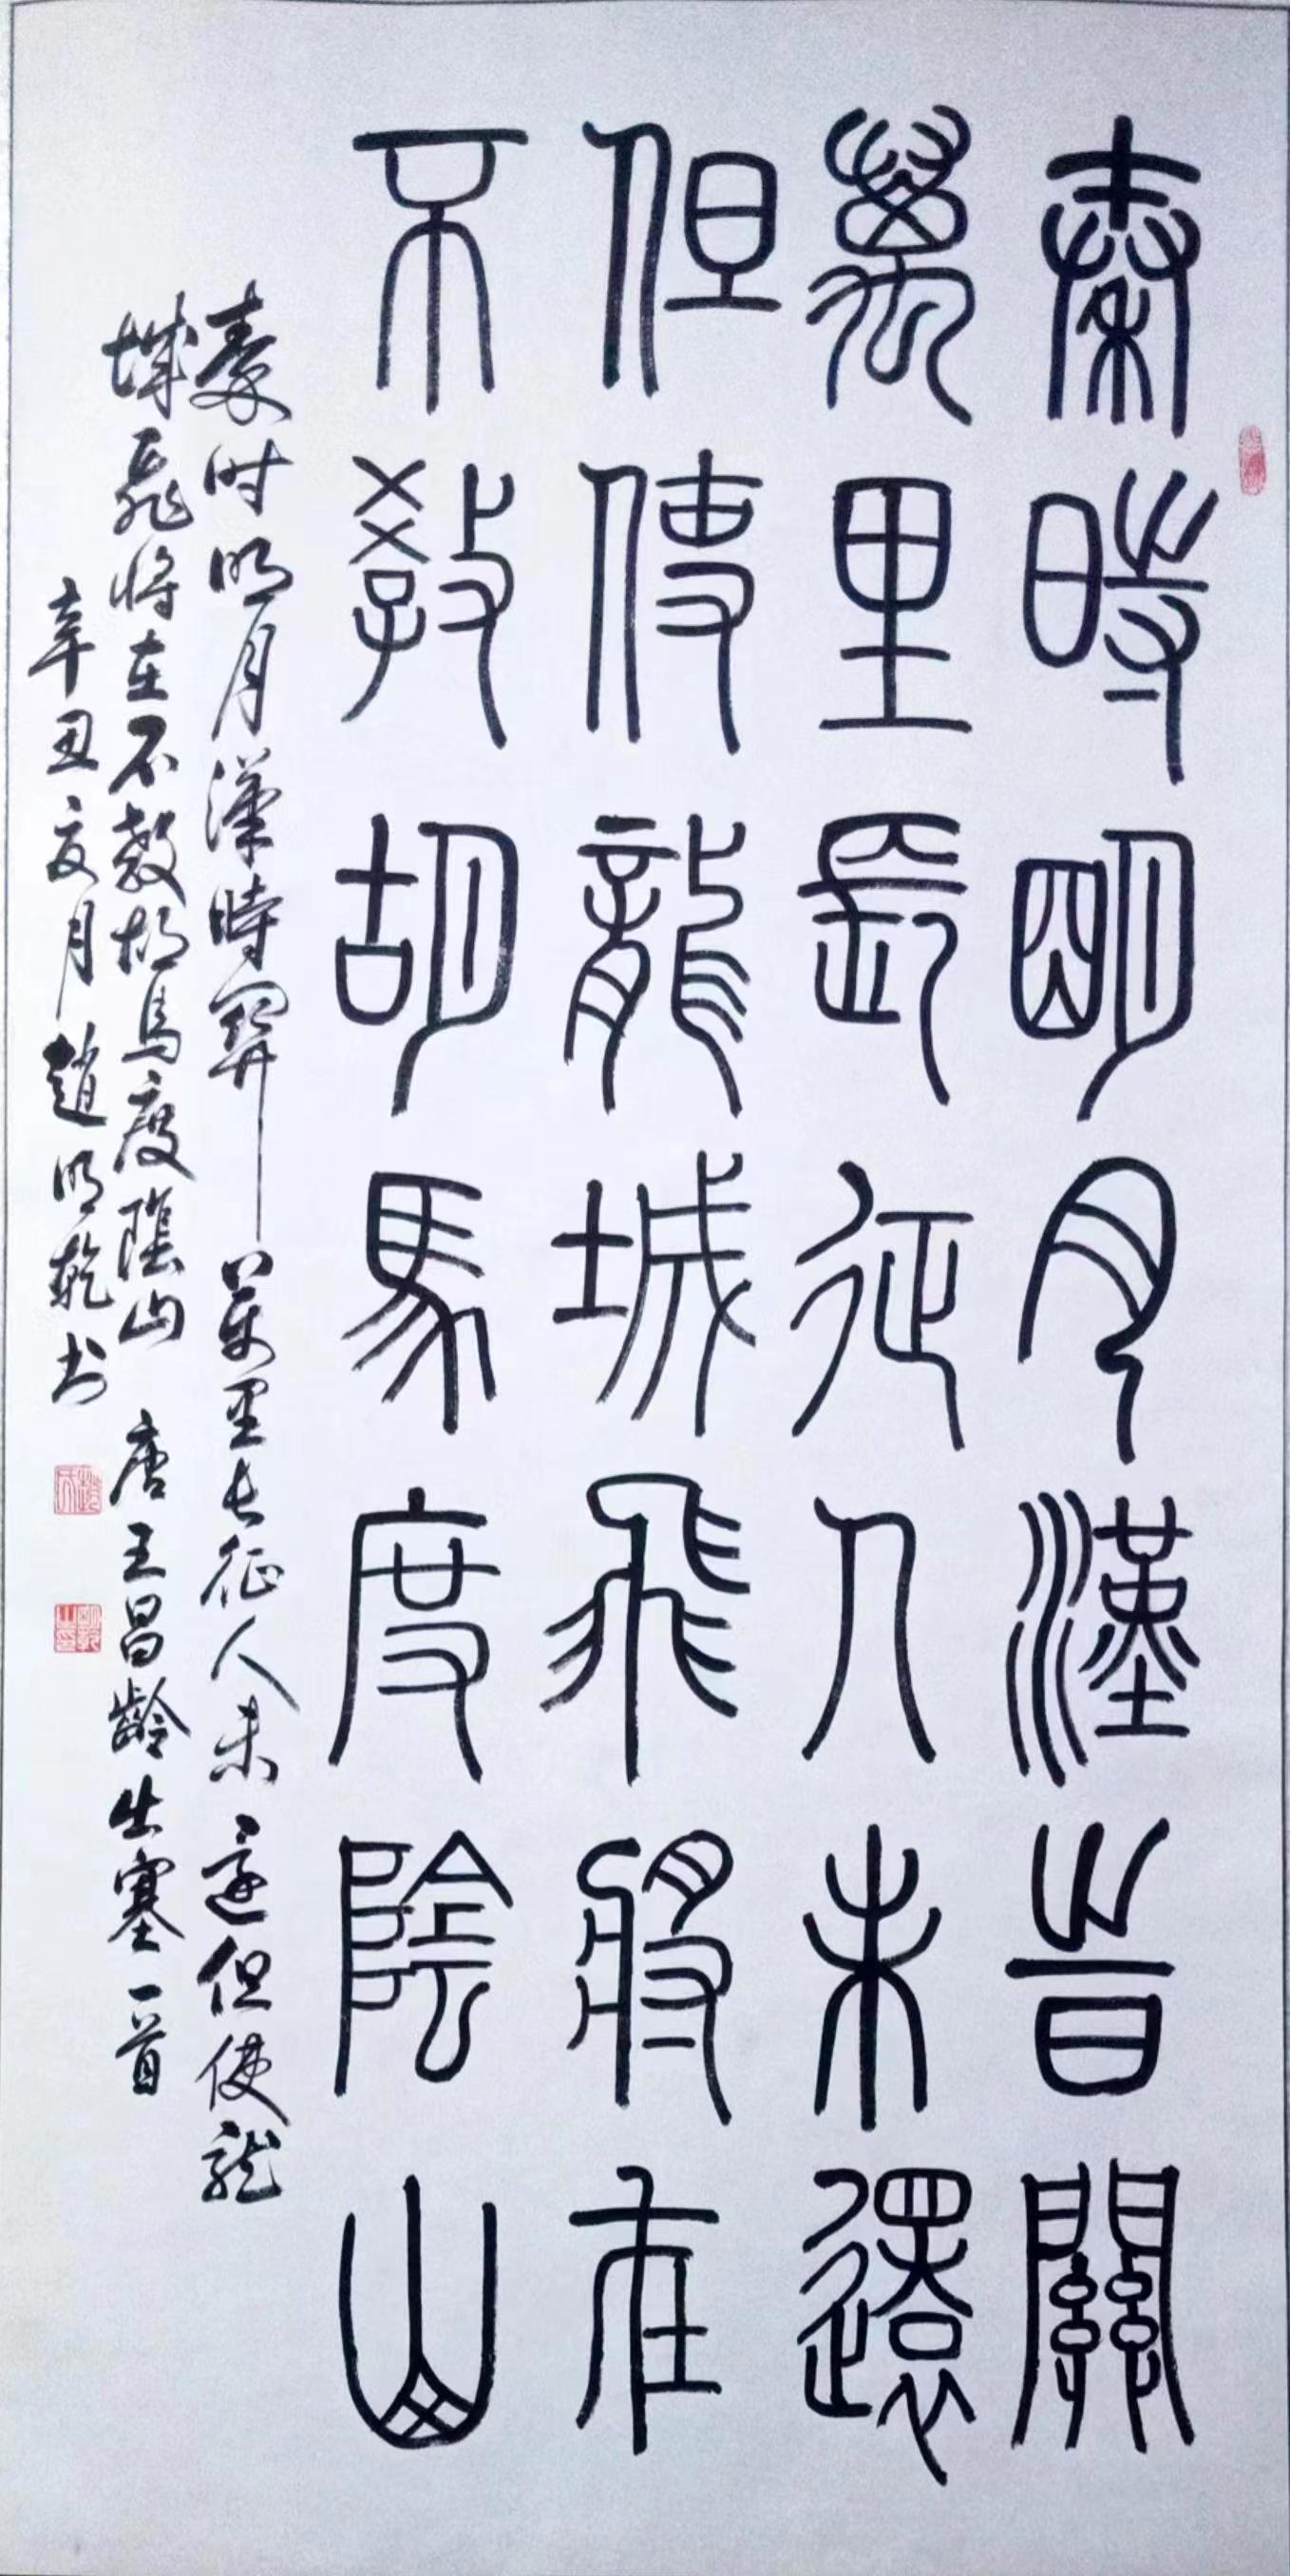 秦時明月漢旹關
萬里長征人未還
但使龍城飛將在
不教胡馬度陰山
秦时明月漢時關萬里長征人未還但使龍
城飛將在不教胡馬度陰山 唐王昌齡出塞一首
辛丑夏月趙明乾书